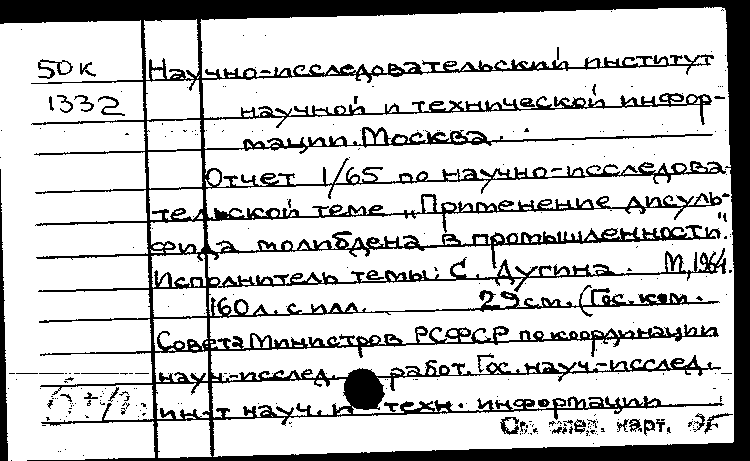 50к Научно-исследовательский институт
1332 научной и технической инфор-
мации. Москва.
Отчет 1/65 по научно-исследова-
тельской теме „Применение дисуль-
фида молибдена в промышленности".
Исполнитель темы: С. Дугина. М, 1964.
160л. с илл. 29см. (Гос. ком.
Совета Министров РСФСР по координации
науч.-исслед. работ. Гос. науч.-исслед.
ин-т науч. и техн. информации
См. след. карт.